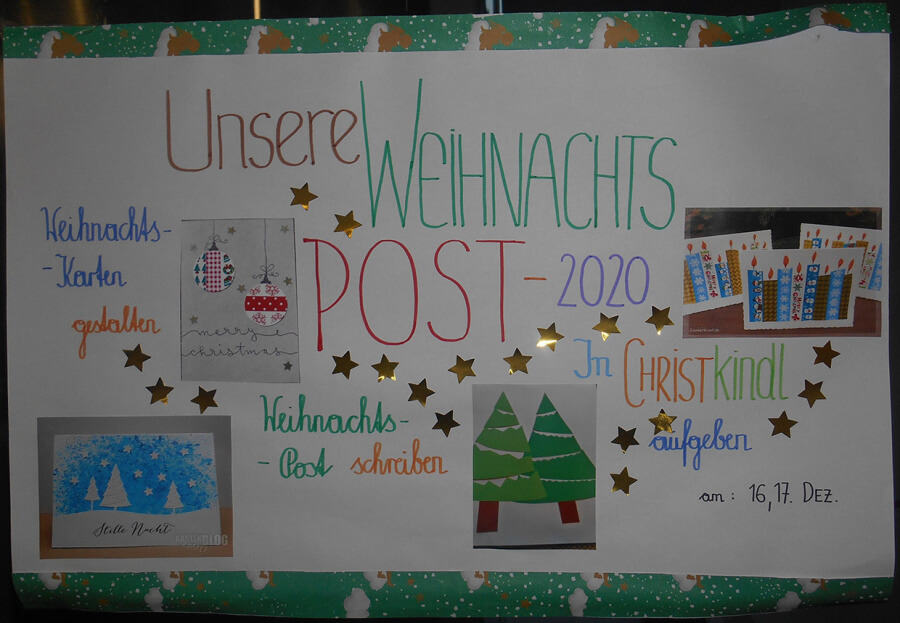 Unsere
WEIHNACHTS
POST-2020
Weihnachts-
-Karten
gestalten
merry
christmas
In CHRISTkindl
aufgeben
am: 16,17. DEZ.
Weihnachts-
-Post schreiben
Stille Nacht
BLOG